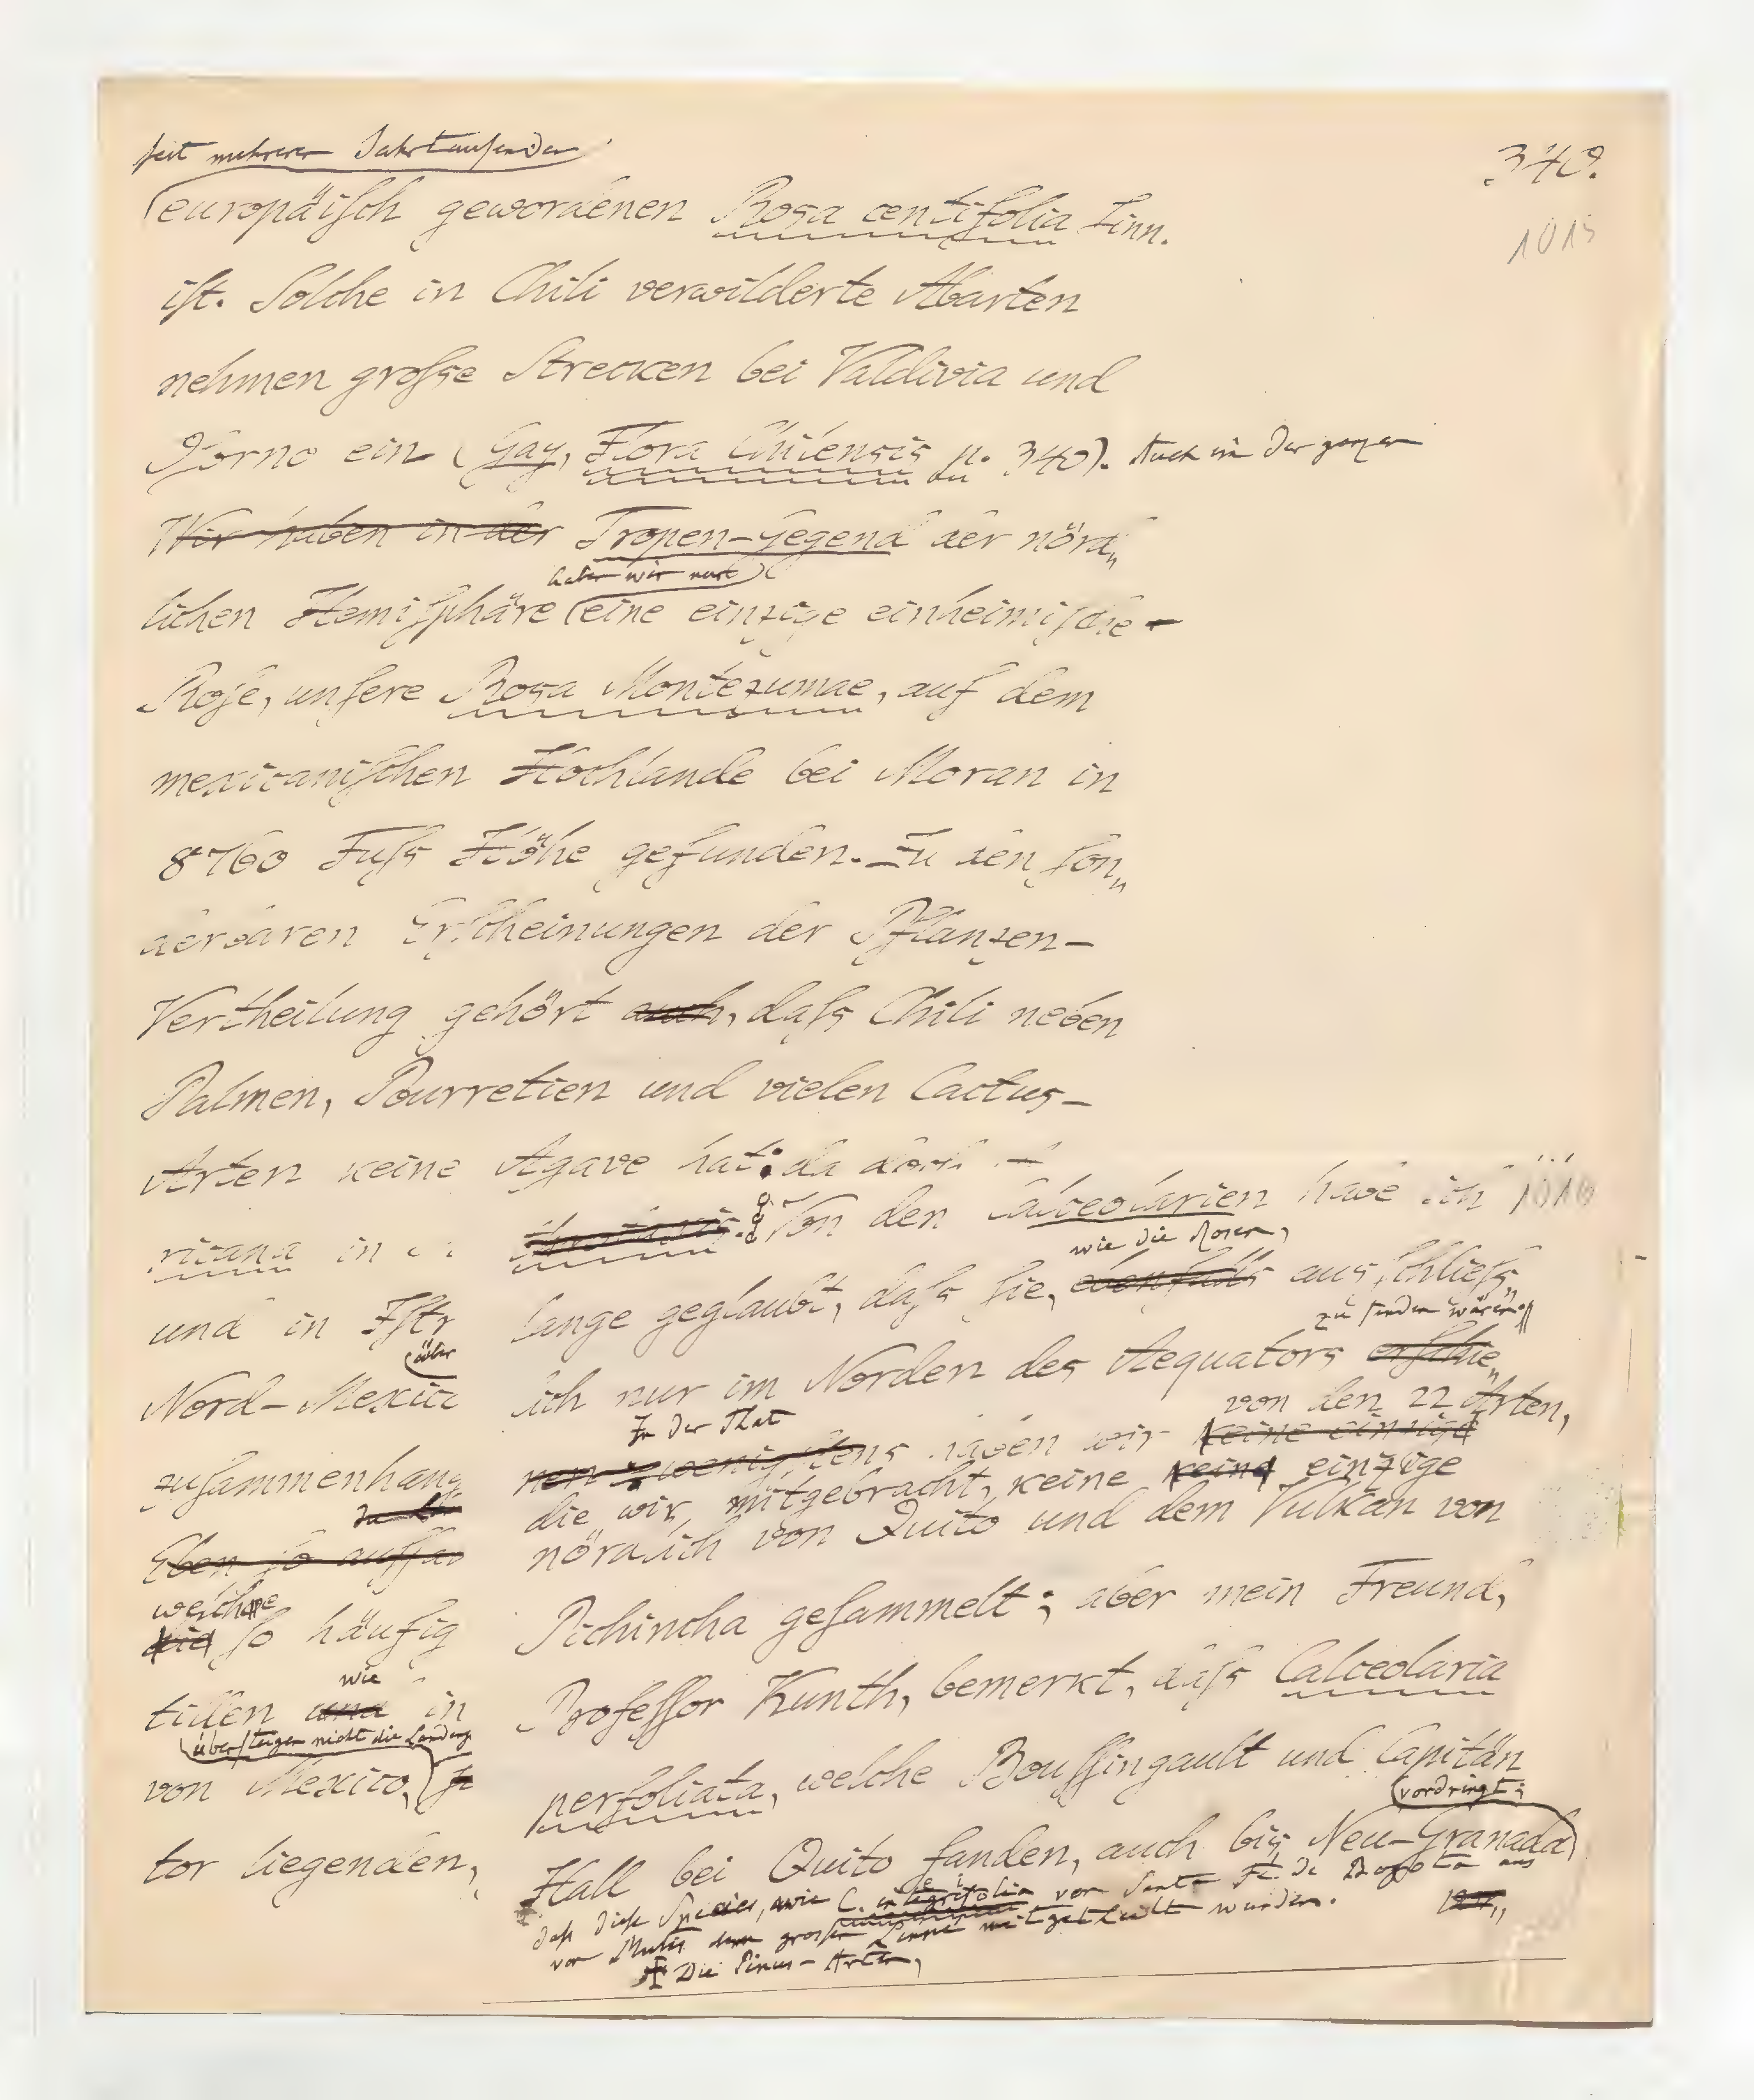 340.
1015
seit mehreren Jahrtausenden
europäisch gewordenen Rosa centifolia Linn.
ist. Solche in Chili verwilderte Abarten
nehmen grosse Strecken bei Valdivia und
Osorno ein (Gay, Flora Chilensis p. 340). Auch in der ganzen
Wir haben in der Tropen-Gegend der nörd„
haben wir nur
lichen Hemisphäre eine einzige einheimische
Rose, unsere Rosa Montezumae, auf dem
mexicanischen Hochlande bei Moran in
8760 Fuss Höhe gefunden. Zu den son„
derbaren Erscheinungen der Pflanzen-
Vertheilung gehört auch, dass Chili neben
Palmen, Pourretien und vielen Cactus-
Arten keine Agave hat: da doch
ricana in
und in Istr
über
Nord-Mexic
zusammenhang
Eben so auffal
welche
die so häufig
wie
tillen und in
übersteigen nicht die Landenge
von Mexico,
tor liegenden,
1016
Von den Calceolarien habe ich
wie die Rosen,
lange geglaubt, dass sie, ebenfalls ausschliess„
zu finden wären
lich nur im Norden des Aequators erschie„
von den 22 Arten,
In der That
nen: wenigstens haben wir keine einzige
die wir mitgebracht, keine keine einzige
nördlich von Quito und dem Vulkan von
Pichincha gesammelt; aber mein Freund,
Professor Kunth, bemerkt, dass Calceolaria
perfoliata, welche Boussingault und Capitän
vordringt;
Hall bei Quito fanden, auch bis Neu-Granada
dass diese Species, wie C. integrifolia von Santa Fé de Bogota aus
von Mutis dem grossen Linné mitgetheilt wurden.
Die Pinus-Arten,